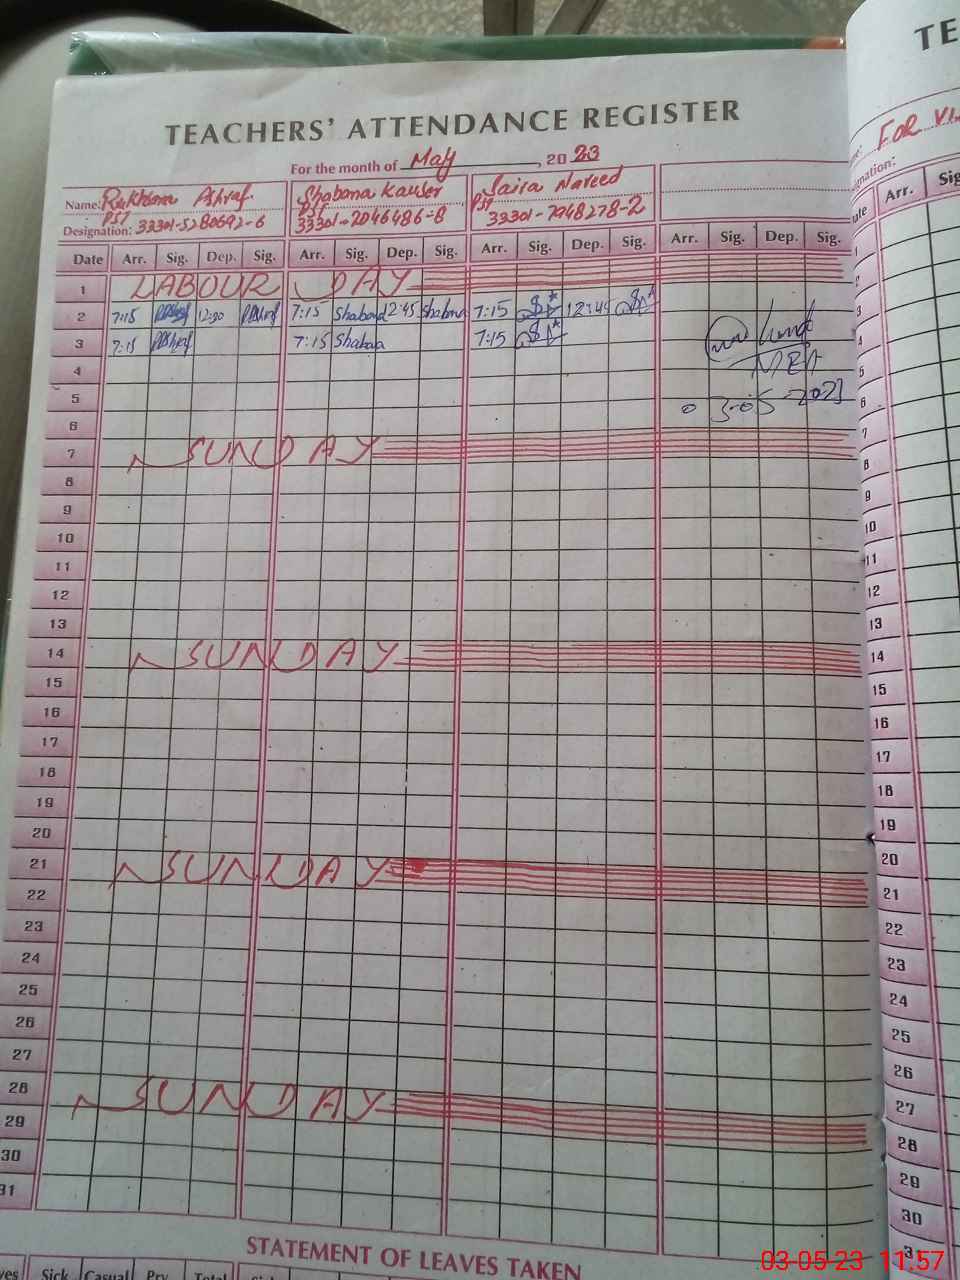 TEACHERS' ATTENDANCE REGISTER
For the month of May, 2023
Name: Rukhsana Ashraf Shabana Kauser Saira Naveed
PST PST PST
Designation: 33301-5280692-6 33301-2046486-8 33301-7948278-2
Date Arr. Sig. Dep. Sig. Arr. Sig. Dep. Sig. Arr. Sig. Dep. Sig. Arr. Sig. Dep. Sig.
1 LABOUR DAY
2 7:15 12:00 7:15 Shabana 12:45 Shabana 7:15 12:45
3 7:15 7:15 Shabana 7:15
4 MEA
5 03-05-2023
6
7 SUNDAY
8
9
10
11
12
13
14 SUNDAY
15
16
17
18
19
20
21 SUNDAY
22
23
24
25
26
27
28 SUNDAY
29
30
31
STATEMENT OF LEAVES TAKEN
Sick Casual Prv Total
TE
FOR
Arr. Sig
1
2
3
4
5
6
7
8
9
10
11
12
13
14
15
16
17
18
19
20
21
22
23
24
25
26
27
28
29
30
31
03-05-23 11:57